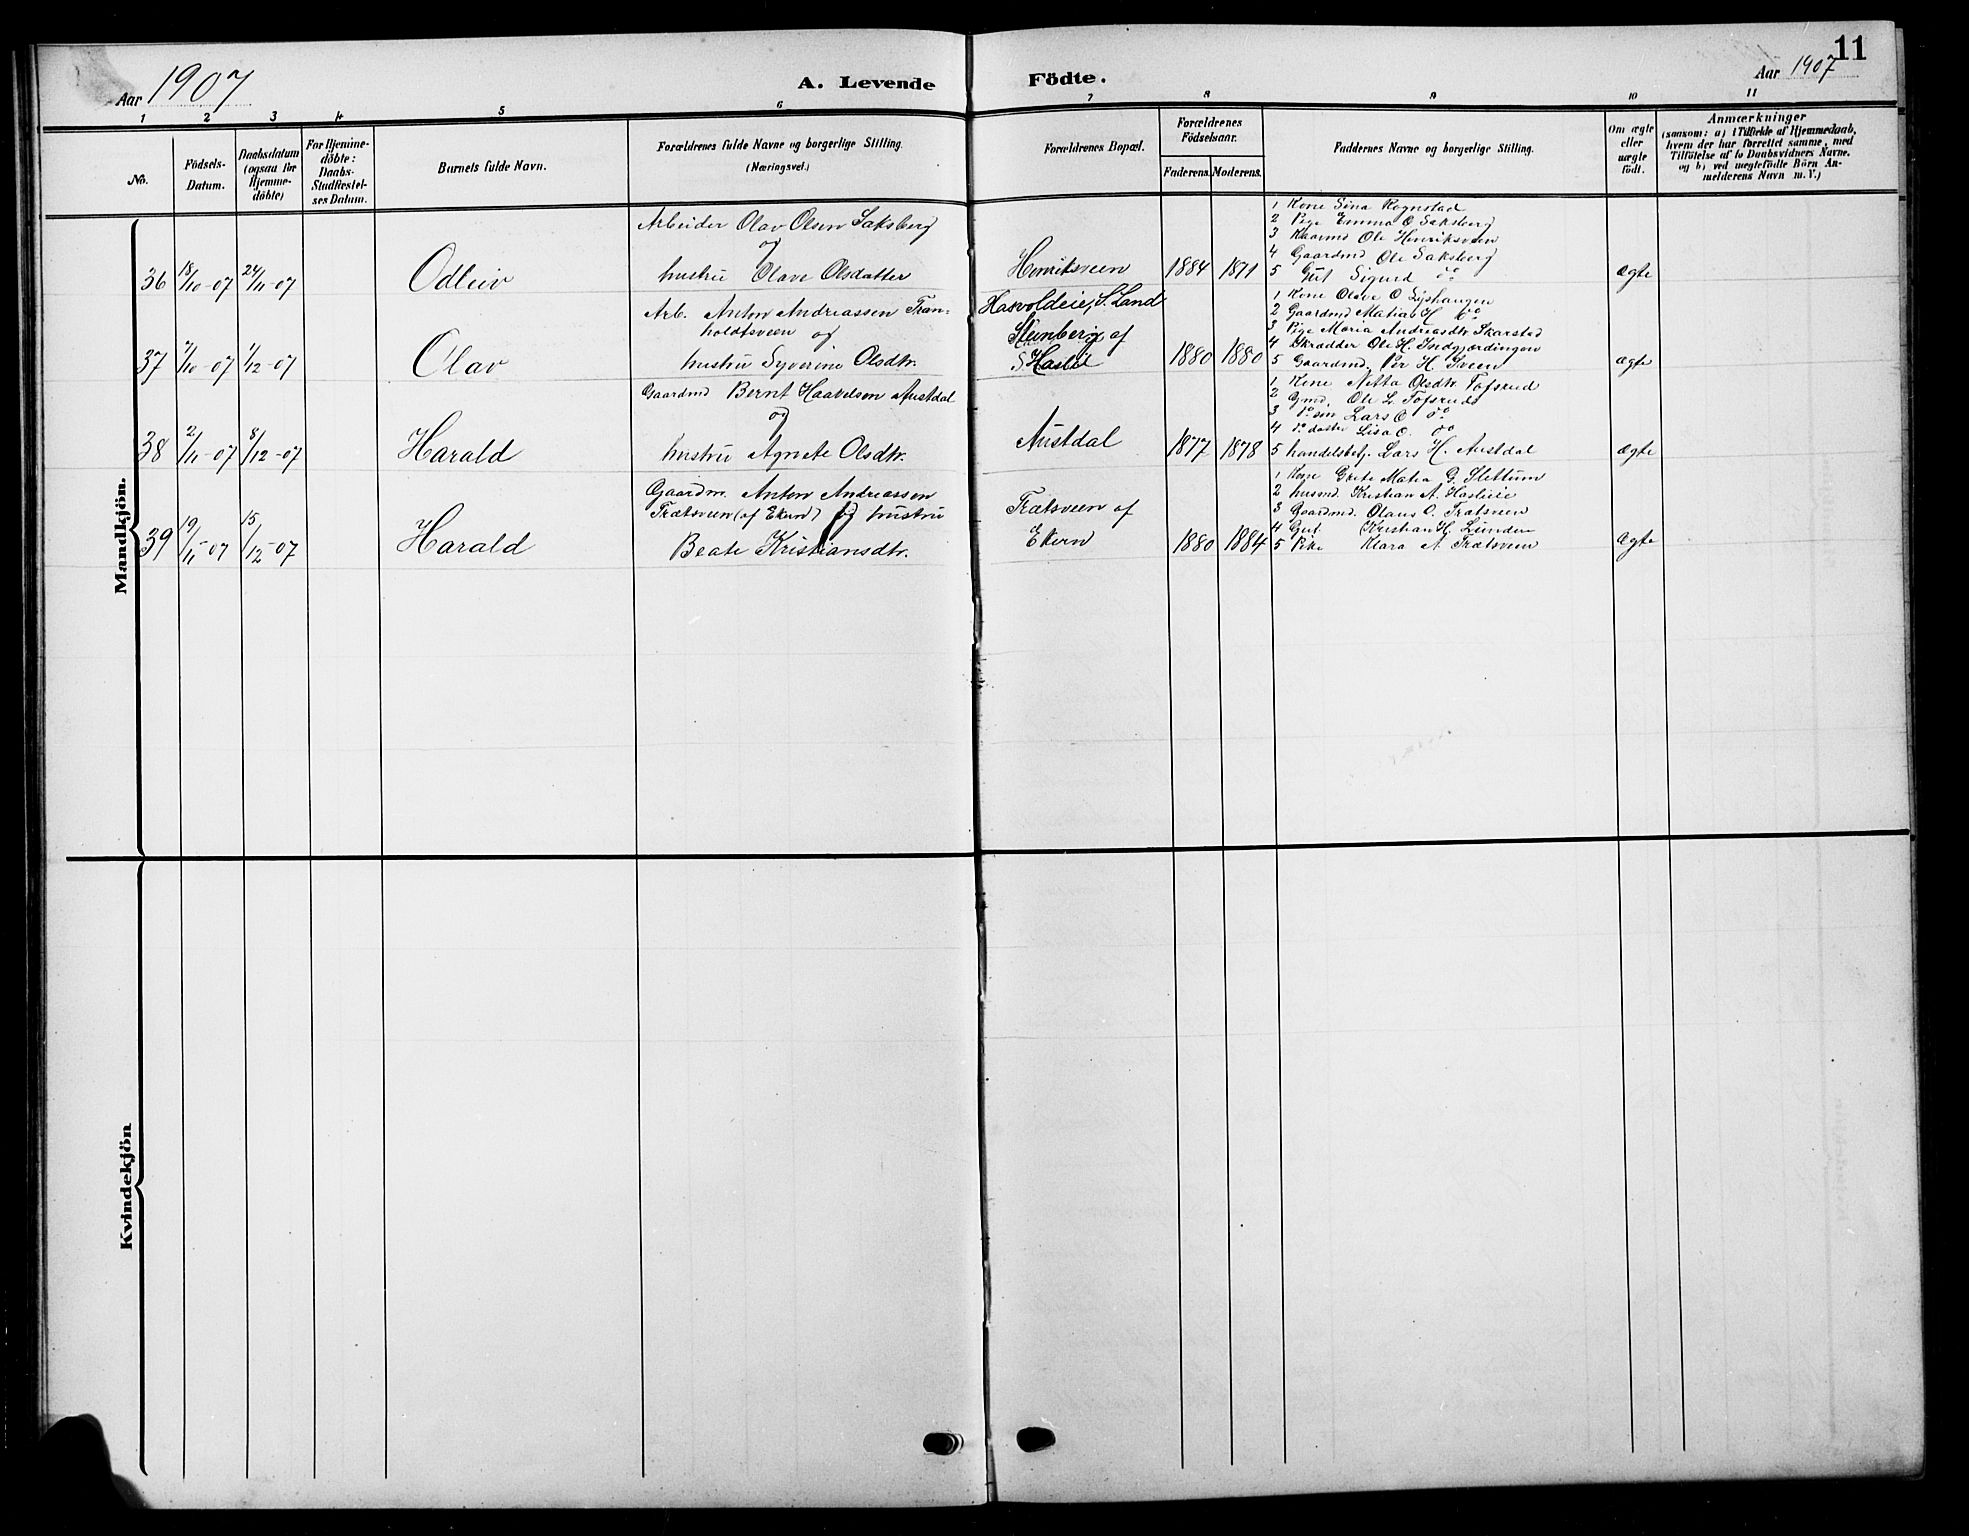 11
Aar 1907
A. Levende Födte.
Aar 1907
1 2 3 4 5 6 7 8 9 10 11
No.
Födsels-
Datum.
Daabsdatum
(ogsaa for
Hjemme-
döbte)
For Hjemme-
döbte:
Daabs-
Stadfæstel-
ses Datum.
Barnets fulde Navn.
Forældrenes fulde Navne og borgerlige Stilling.
(Næringsvei.)
Forældrenes Bopæl.
Forældrenes
Födselsaar.
Faderens. Moderens.
Faddernes Navne og borgerlige Stilling.
Om ægte
eller
uægte
födt.
Anmærkninger
(saasom: a) i Tilfælde af Hjemmedaab,
hvem der har forrettet samme, med
Tilföielse af to Daabsvidners Navne.
og b) ved uægtefödte Börn An-
melderens Navn m. V.)
Mandkjön.
36 18/10-07 24/11-07 Odleiv
Arbeider Olav Olsen Saksberg
og
hustru Olave Olsdatter
Henriksveen 1884 1871
1 Kone Sina Rognstad
2 Pige Emma O Saksberg
3 Kaarmd Ole Henriksveen
4 Gaardmd Ole Saksberg
5 Gut Sigurd do
Ægte
37 7/10-07 1/12-07 Olav
Arb. Anton Andreassen Tran=
holdtsveen og
hustru Syverine Olsdtr.
Hasvoldeie, S. Land
Stenberg af
S. Haslie 1880 1880
1 Kone Olave O
2 Gaardmd Matias H do
3 Pige Maria Andreasdtr Skarstad
4 Skrædder Ole H. Indgjærdingen
5 Gaardmd. Per H. Sveen
ægte
38 2/11-07 8/12-07 Harald
Gaardmd Bernt Haavelsen Austdal
og
hustru Agnete Olsdtr.
Austdal 1877 1878
1 Kone Netta Olsdtr Tofsrud
2 Gmd. Ole L. Tofsruds
3 do søn Lars O do
4 do datter Lisa O. do
5 handelsbetj. Lars H. Austdal
ægte
39 19/11-07 15/12-07 Harald
Gaardm. Anton Andreassen
Trætsveen (af Ekern) og hustru
Beate Kristiansdtr.
Trætsveen af
Ekern 1880 1884
1 Kone Grete Matea G. Slettum
2 husmd. Kristian A. Haslieie
3 Gaardmd. Olaus O. Trætsveen
4 Gut Kristian H. Lunden
5 Pike Klara A. Trætsveen
Ægte
Kvindekjön